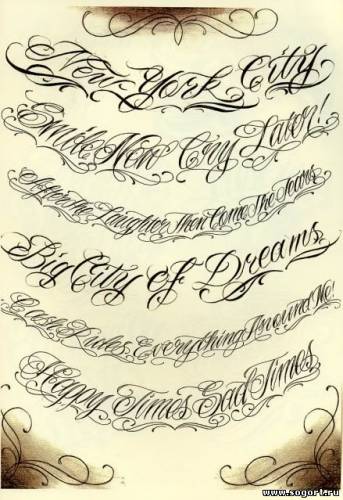 New York City
Smile Now Cry Later!
After the Laughter Then Come The Tears
Big City of Dreams
Cash Rules Everything Around Me!
Happy Times Sad Times
www.sogort.ru